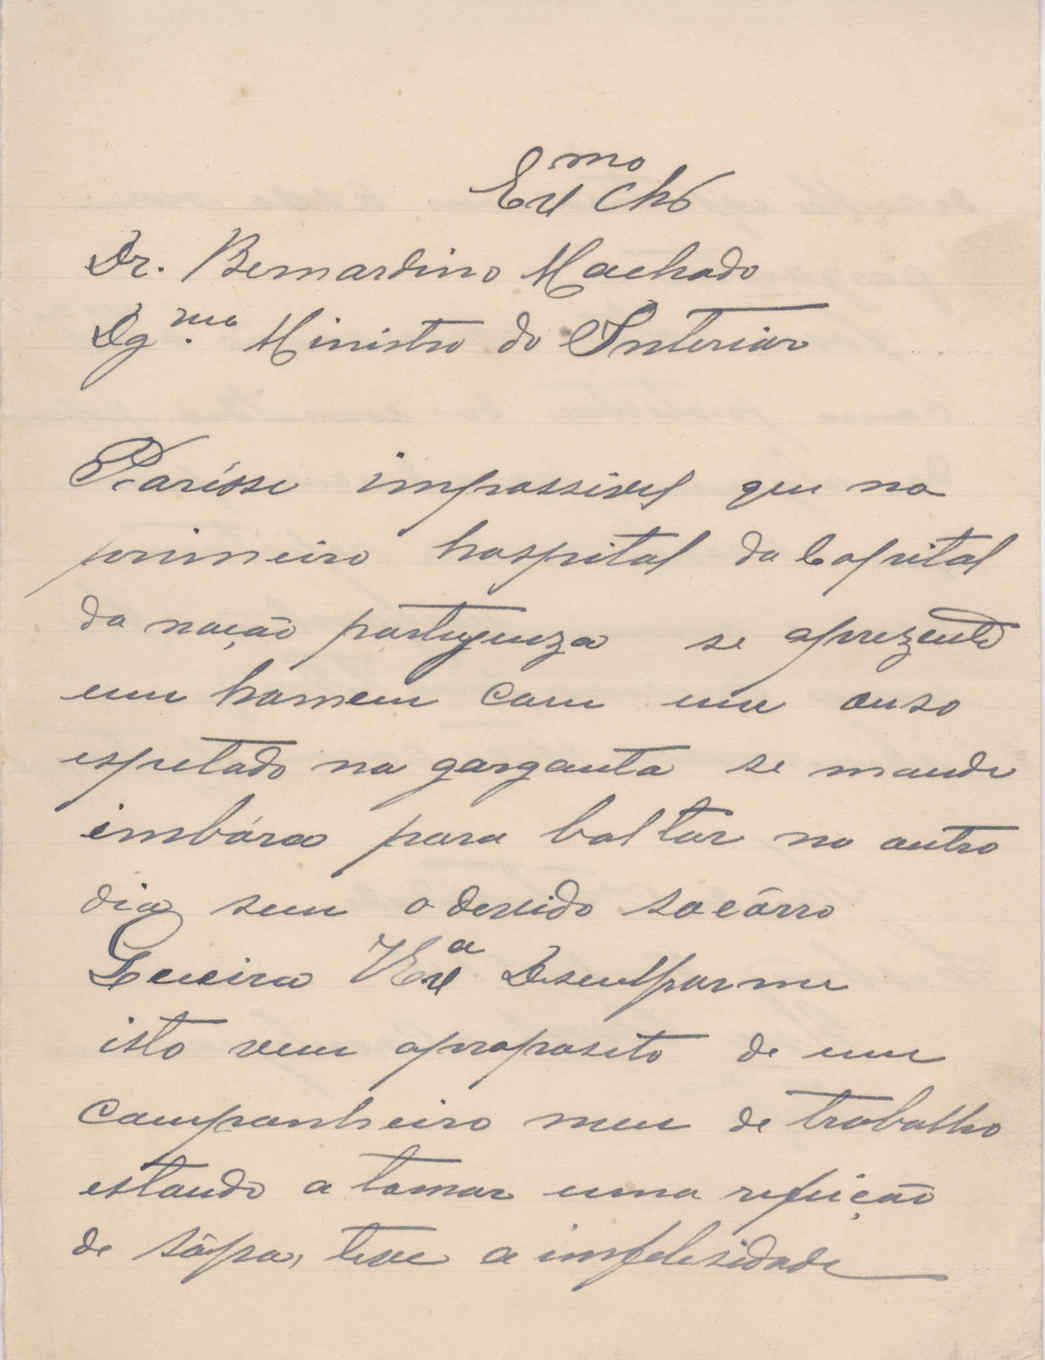 Ex.mo
Dr. Bernardino Machado
Dg.mo Ministro do Interior
Parésse impossivel que no
primeiro hospital da Capital
da nação portugueza se aprezente
um homem com um ouso
espetado na garganta se mande
imbóra para boltar no outro
dia sem o devido socôrro
Queira V Exa Desculparme
isto vem aproposito de um
companheiro meu de trabalho
estando a tomar uma refeição
de sôpa, teve a imfelesidade